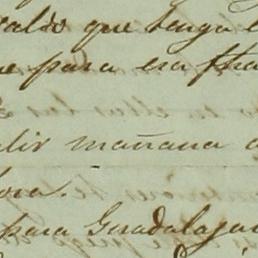 saldo que tenga
e para esa fha
lir mañana a
hora.
para Guadalajar